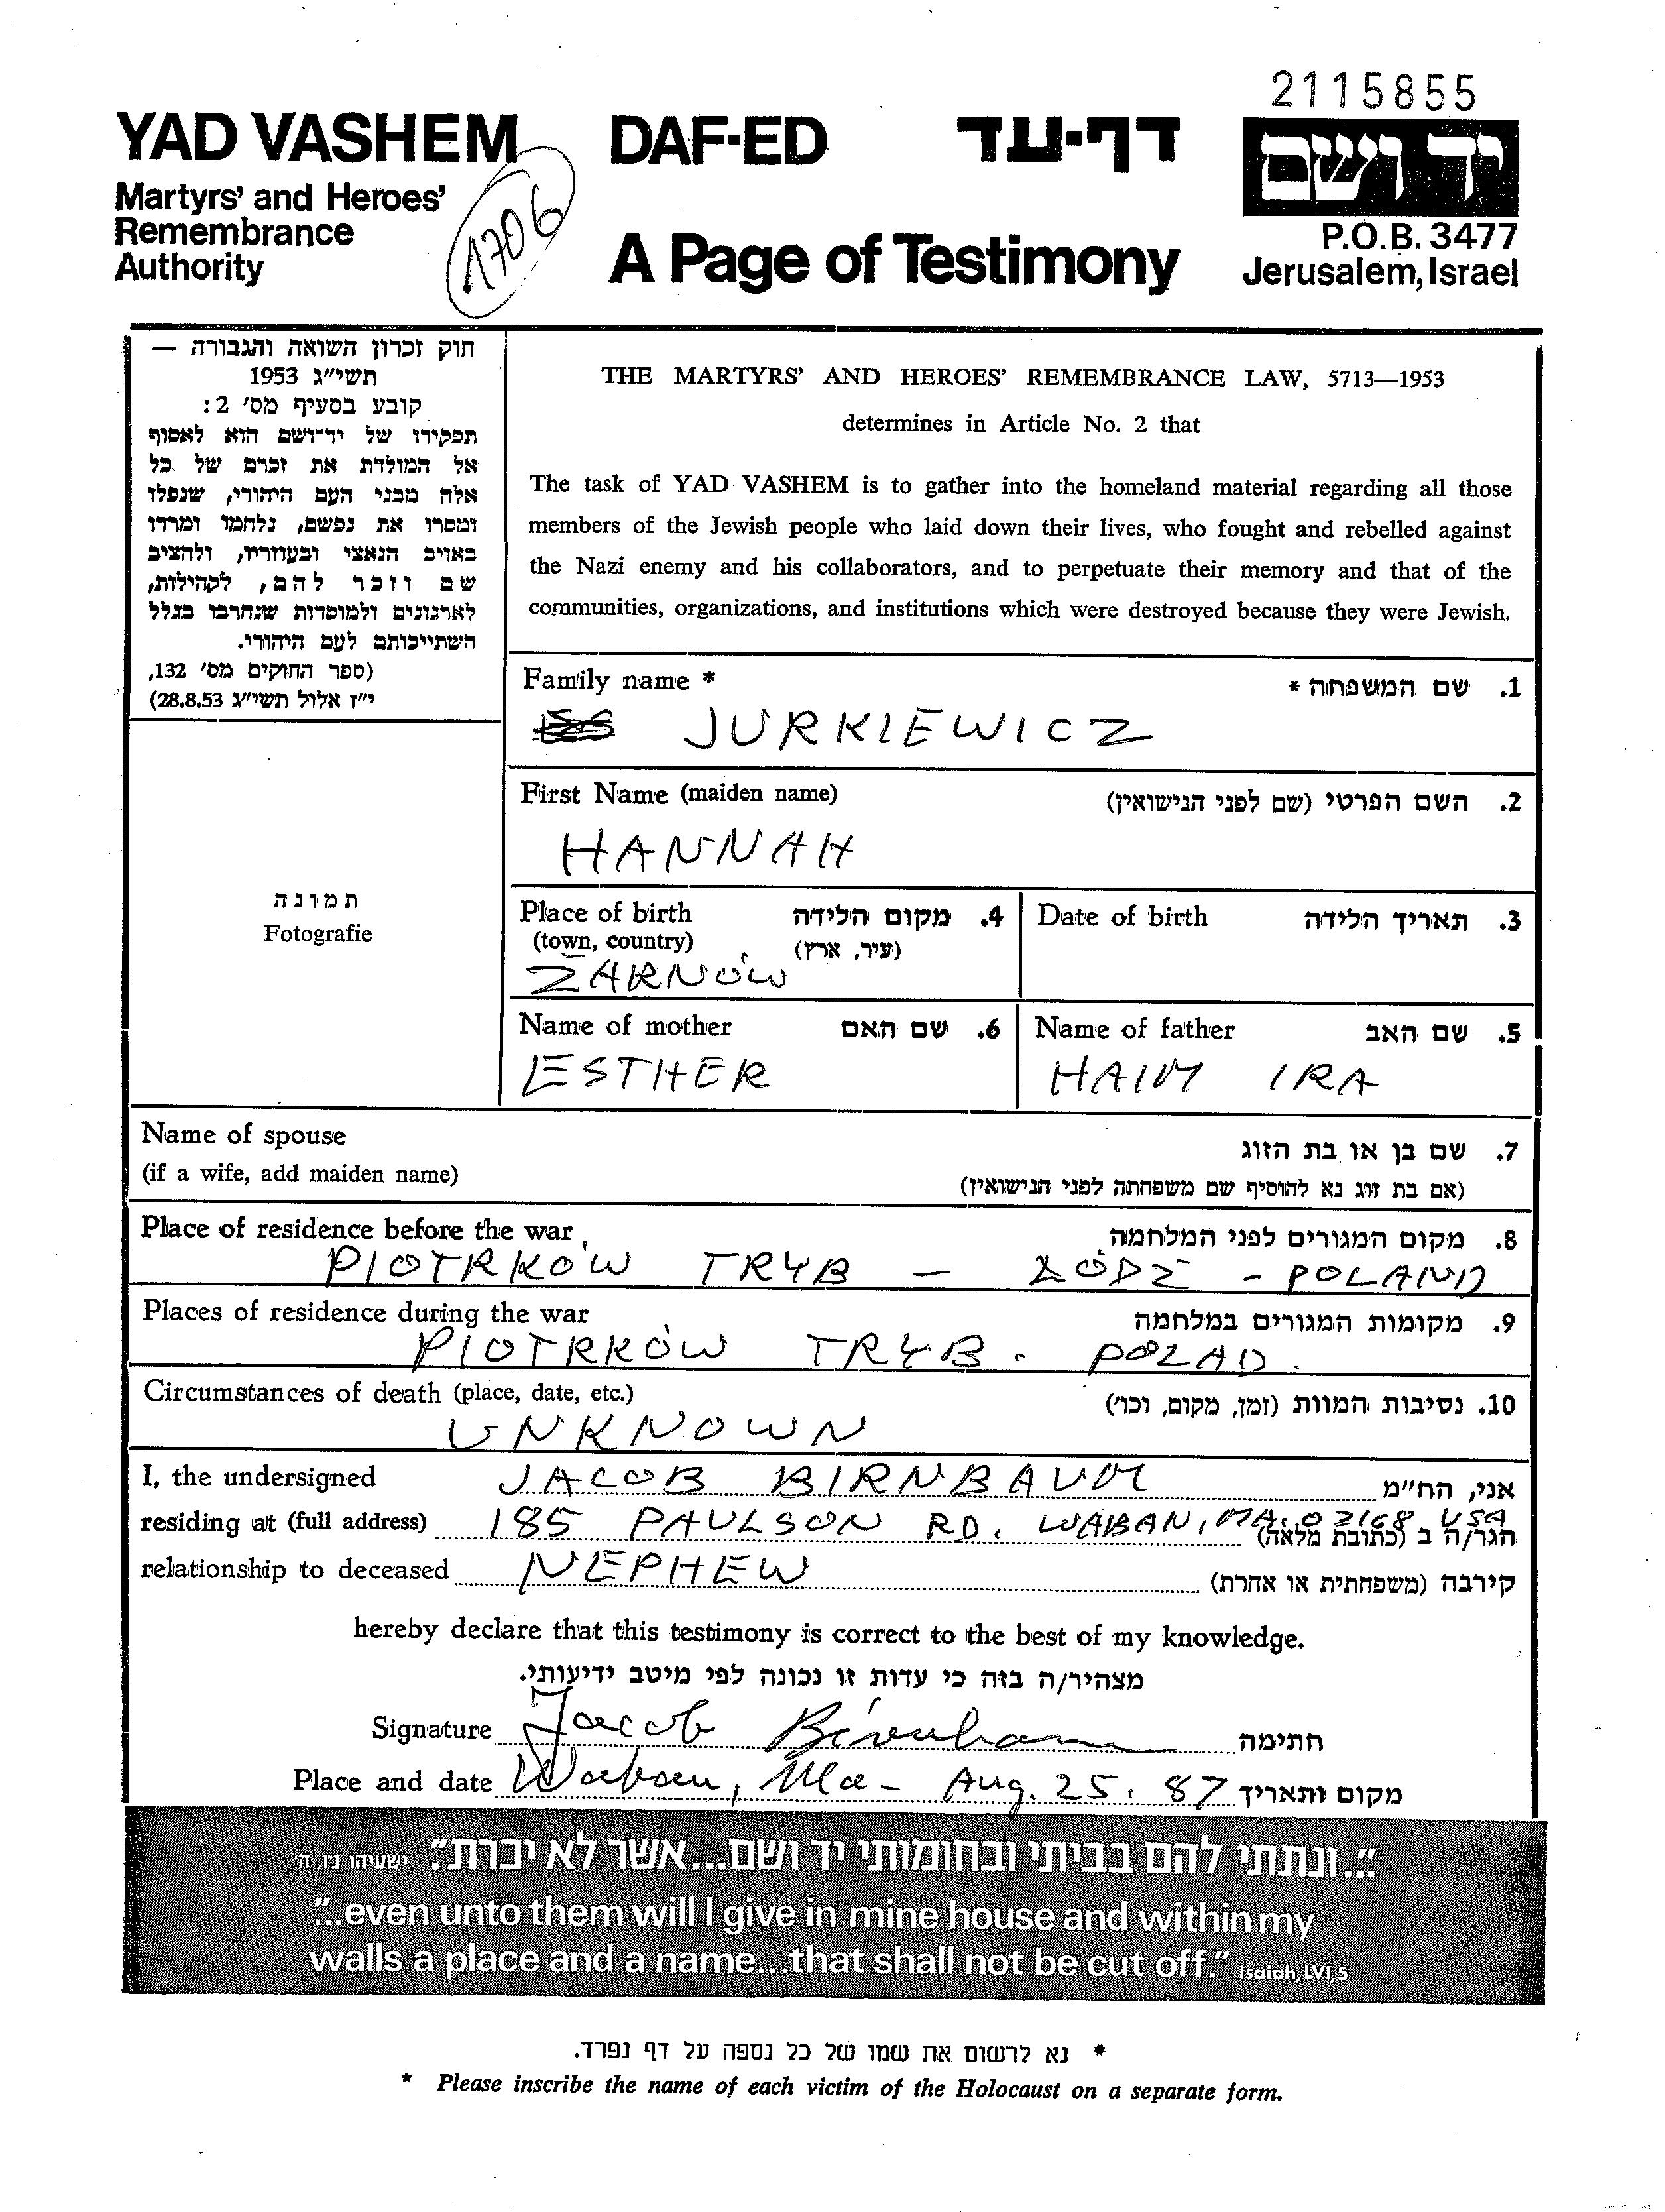 2115855
YAD VASHEM DAF-ED דף-עד יד ושם
Martyrs' and Heroes'
Remembrance
Authority
1706
A Page of Testimony
P.O.B. 3477
Jerusalem, Israel
חוק זכרון השואה והגבורה —
תשי"ג 1953
קובע בסעיף מס' 2:
תפקידו של יד־ושם הוא לאסוף
אל המולדת את זכרם של כל
אלה מבני העם היהודי, שנפלו
ומסרו את נפשם, נלחמו ומרדו
באויב הנאצי ובעוזריו, ולהציב
שם וזכר להם, לקהילות,
לארגונים ולמוסדות שנחרבו בגלל
השתייכותם לעם היהודי.
(ספר החוקים מס' 132,
י"ז אלול תשי"ג 28.8.53)
תמונה
Fotografie
THE MARTYRS' AND HEROES' REMEMBRANCE LAW, 5713—1953
determines in Article No. 2 that
The task of YAD VASHEM is to gather into the homeland material regarding all those
members of the Jewish people who laid down their lives, who fought and rebelled against
the Nazi enemy and his collaborators, and to perpetuate their memory and that of the
communities, organizations, and institutions which were destroyed because they were Jewish.
Family name * 1. שם המשפחה *
JURKIEWICZ
First Name (maiden name) 2. השם הפרטי (שם לפני הנישואין)
HANNAH
Place of birth 4. מקום הלידה
(town, country) (עיר, ארץ)
ŻARNÓW
Date of birth 3. תאריך הלידה
Name of mother 6. שם האם
ESTHER
Name of father 5. שם האב
HAIM IRA
Name of spouse 7. שם בן או בת הזוג
(if a wife, add maiden name) (אם בת זוג נא להוסיף שם משפחתה לפני הנישואין)
Place of residence before the war 8. מקום המגורים לפני המלחמה
PIOTRKÓW TRYB — ŁÓDZ - POLAND
Places of residence during the war 9. מקומות המגורים במלחמה
PIOTRKÓW TRYB. POLAD.
Circumstances of death (place, date, etc.) 10. נסיבות המוות (זמן, מקום, וכו')
UNKNOWN
I, the undersigned JACOB BIRNBAUM אני, הח"מ
residing at (full address) 185 PAULSON RD. WABAN, MA. 02168 USA הגר/ה ב (כתובת מלאה)
relationship to deceased NEPHEW קירבה (משפחתית או אחרת)
hereby declare that this testimony is correct to the best of my knowledge.
מצהיר/ה בזה כי עדות זו נכונה לפי מיטב ידיעותי.
Signature Jacob Birnbaum חתימה
Place and date Waban, Ma - Aug. 25. 87 מקום ותאריך
"...ונתתי להם בביתי ובחומותי יד ושם...אשר לא יכרת". ישעיהו נ"ו, ה'
"...even unto them will I give in mine house and within my
walls a place and a name...that shall not be cut off." Isaiah, LVI, 5
* נא לרשום את שמו של כל נספה על דף נפרד.
* Please inscribe the name of each victim of the Holocaust on a separate form.